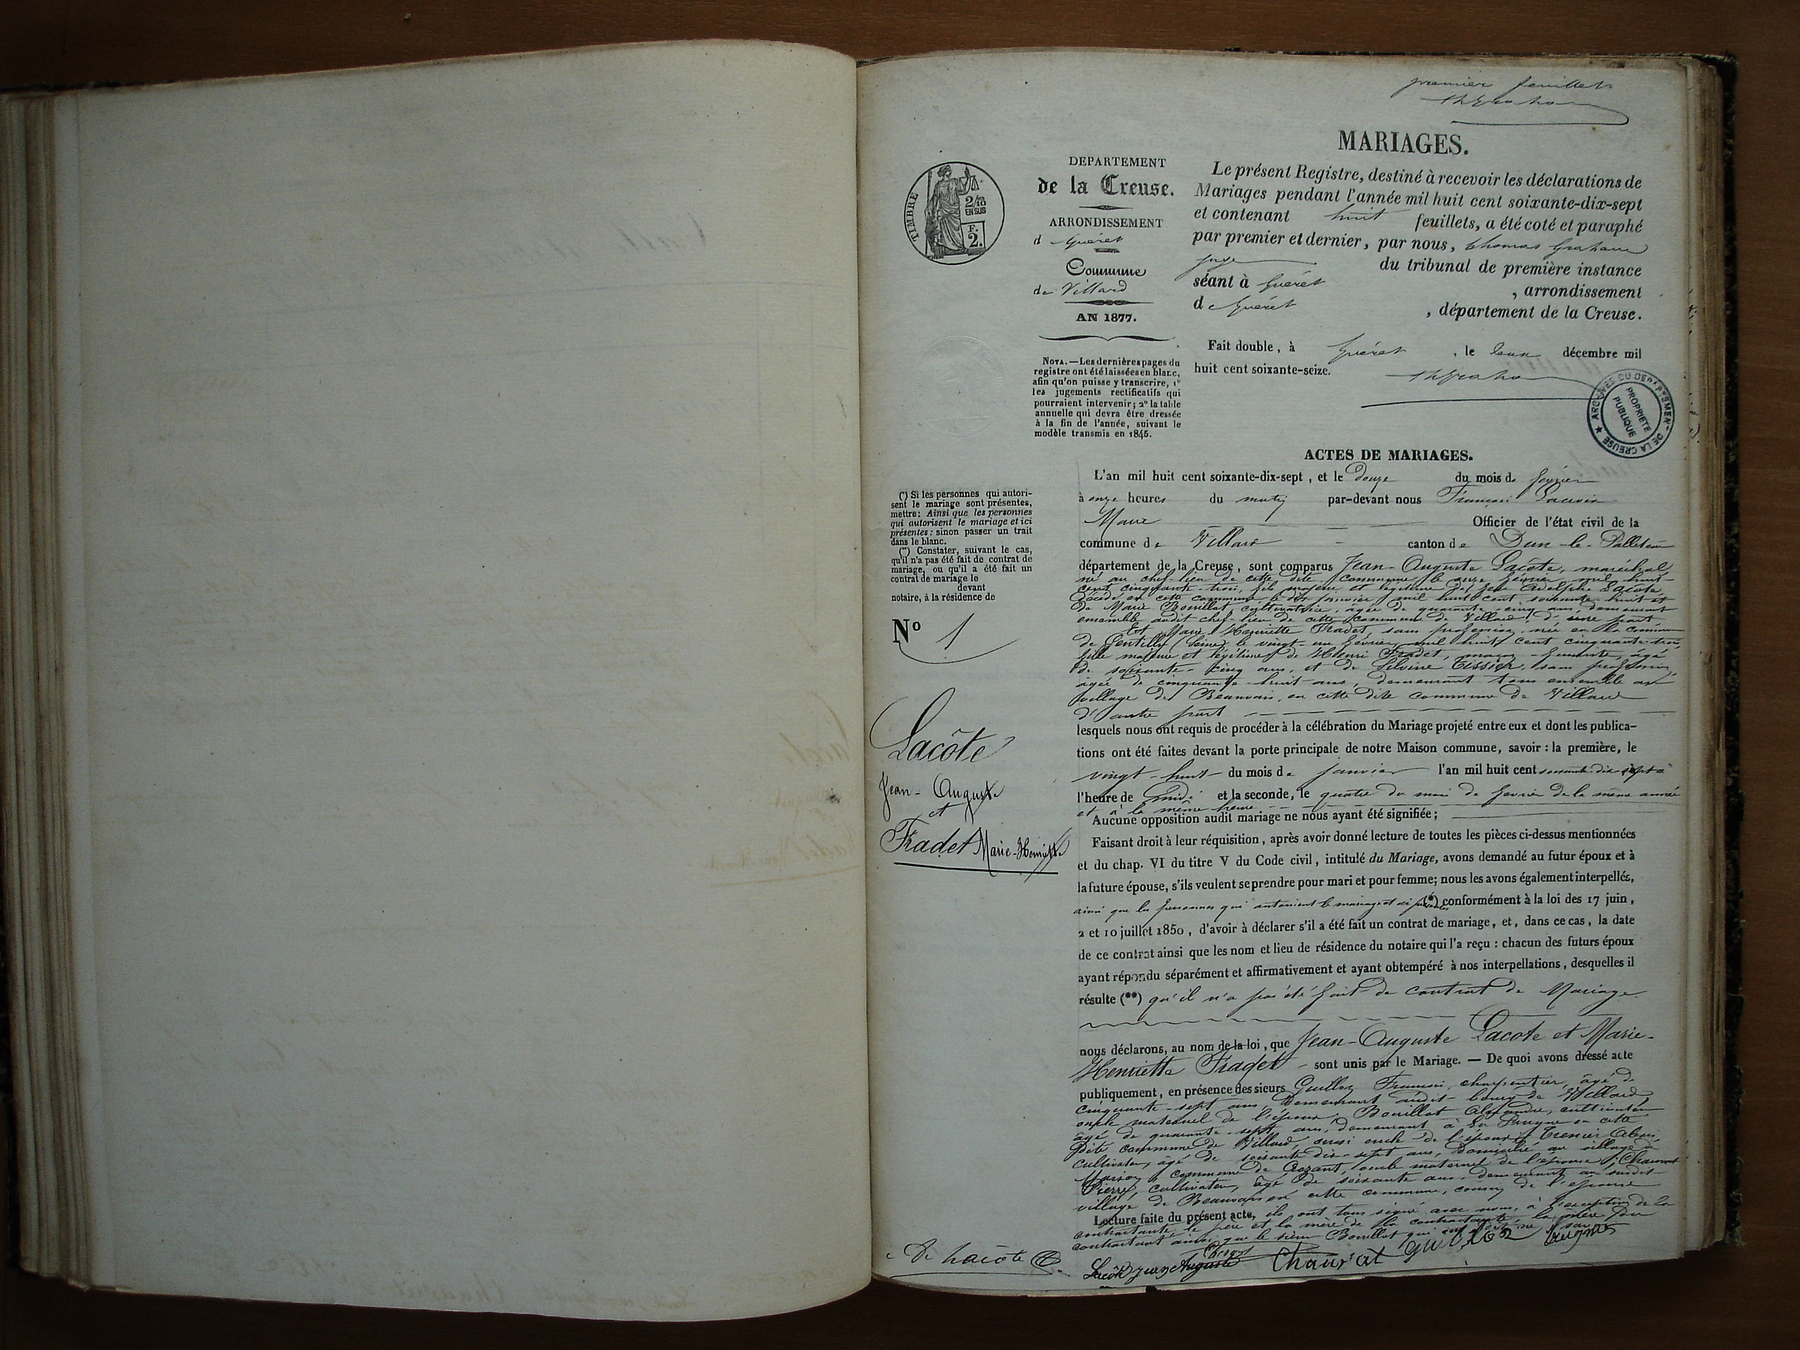 premier feuillet
MARIAGES.
TIMBRE
2/10
EN SUS
F.
2.
DEPARTEMENT
de la Creuse.
ARRONDISSEMENT
d Guéret
Commune
de Villard
AN 1877.
NOTA. — Les dernières pages du
registre ont été laissées en blanc,
afin qu'on puisse y transcrire, 1°
les jugements rectificatifs qui
pourraient intervenir; 2° la table
annuelle qui devra être dressée
à la fin de l'année, suivant le
modèle transmis en 1845.
Le présent Registre, destiné à recevoir les déclarations de
Mariages pendant l'année mil huit cent soixante-dix-sept
et contenant huit feuillets, a été coté et paraphé
par premier et dernier, par nous, Thomas Graham
juge du tribunal de première instance
séant à Guéret , arrondissement
de Guéret , département de la Creuse.
Fait double, à Guéret , le deux décembre mil
huit cent soixante-seize.
ARCHIVES DU DEPARTEMENT DE LA CREUSE
PROPRIÉTÉ
PUBLIQUE
ACTES DE MARIAGES.
(*) Si les personnes qui autori-
sent le mariage sont présentes,
mettre: Ainsi que les personnes
qui autorisent le mariage et ici
présentes: sinon passer un trait
dans le blanc.
(**) Constater, suivant le cas,
qu'il n'a pas été fait de contrat de
mariage, ou qu'il a été fait un
contrat de mariage le
devant
notaire, à la résidence de
N° 1
Lacôte
Jean-Auguste
et
Fradet Marie-Henriette
L'an mil huit cent soixante-dix-sept, et le douze du mois de février
à onze heures du matin par-devant nous François
Maire Officier de l'état civil de la
commune de Villard canton de Dun-le-Palleteau
département de la Creuse, sont comparus Jean-Auguste Lacôte, maréchal,
né au chef-lieu de cette dite commune le onze février mil huit
cent cinquante-trois, fils majeur et légitime de feu Adolphe Lacôte,
décédé en cette commune le dix janvier mil huit cent soixante-huit et
de Marie Bouillot, cultivatrice, âgée de quarante-cinq ans, demeurant
ensemble audit chef-lieu de cette commune de Villard, d'une part.
Et Marie Henriette Fradet, sans profession, née en la commune
de Gentilly (Seine) le vingt-un février mil huit cent cinquante-trois
fille majeure et légitime de Henri Fradet, maçon, âgé
de soixante-cinq ans, et de Silvine Tissier, sans profession,
âgée de cinquante-huit ans, demeurant tous ensemble au
village de Beauvais, en cette dite commune de Villard
d'autre part
lesquels nous ont requis de procéder à la célébration du Mariage projeté entre eux et dont les publica-
tions ont été faites devant la porte principale de notre Maison commune, savoir: la première, le
vingt-huit du mois de janvier l'an mil huit cent soixante-dix-sept à
l'heure de midi et la seconde, le quatre du mois de février de la même année
et à la même heure
Aucune opposition audit mariage ne nous ayant été signifiée;
Faisant droit à leur réquisition, après avoir donné lecture de toutes les pièces ci-dessus mentionnées
et du chap. VI du titre V du Code civil, intitulé du Mariage, avons demandé au futur époux et à
la future épouse, s'ils veulent se prendre pour mari et pour femme; nous les avons également interpellés,
ainsi que les personnes qui autorisent le mariage et ici présentes (*) conformément à la loi des 17 juin,
2 et 10 juillet 1850, d'avoir à déclarer s'il a été fait un contrat de mariage, et, dans ce cas, la date
de ce contrat ainsi que les nom et lieu de résidence du notaire qui l'a reçu: chacun des futurs époux
ayant répondu séparément et affirmativement et ayant obtempéré à nos interpellations, desquelles il
résulte (**) qu'il n'a pas été fait de contrat de Mariage
nous déclarons, au nom de la loi, que Jean-Auguste Lacote et Marie-
Henriette Fradet - sont unis par le Mariage. — De quoi avons dressé acte
publiquement, en présence des sieurs Guillez François, charpentier, âgé de
cinquante-sept ans, demeurant audit bourg de Villard,
oncle maternel de l'époux, Bouillot Alexandre, cultivateur
âgé de quarante-sept ans, demeurant à en cette
dite commune de Villard, aussi oncle de l'époux,
cultivateur, âgé de soixante-dix-sept ans, domicilié au village de
commune de Crozant, oncle maternel de l'épouse, Chaurat
Pierre, cultivateur, âgé de soixante ans, demeurant au susdit
village de Beauvais en cette commune, cousin de l'épouse
Lecture faite du présent acte, ils ont tous signé avec nous, à l'exception de la
contractante, le père et la mère de la contractante, la mère du
contractant ainsi que le sieur Bouillot qui ont
Lacôte Jean Auguste Chaurat guillez